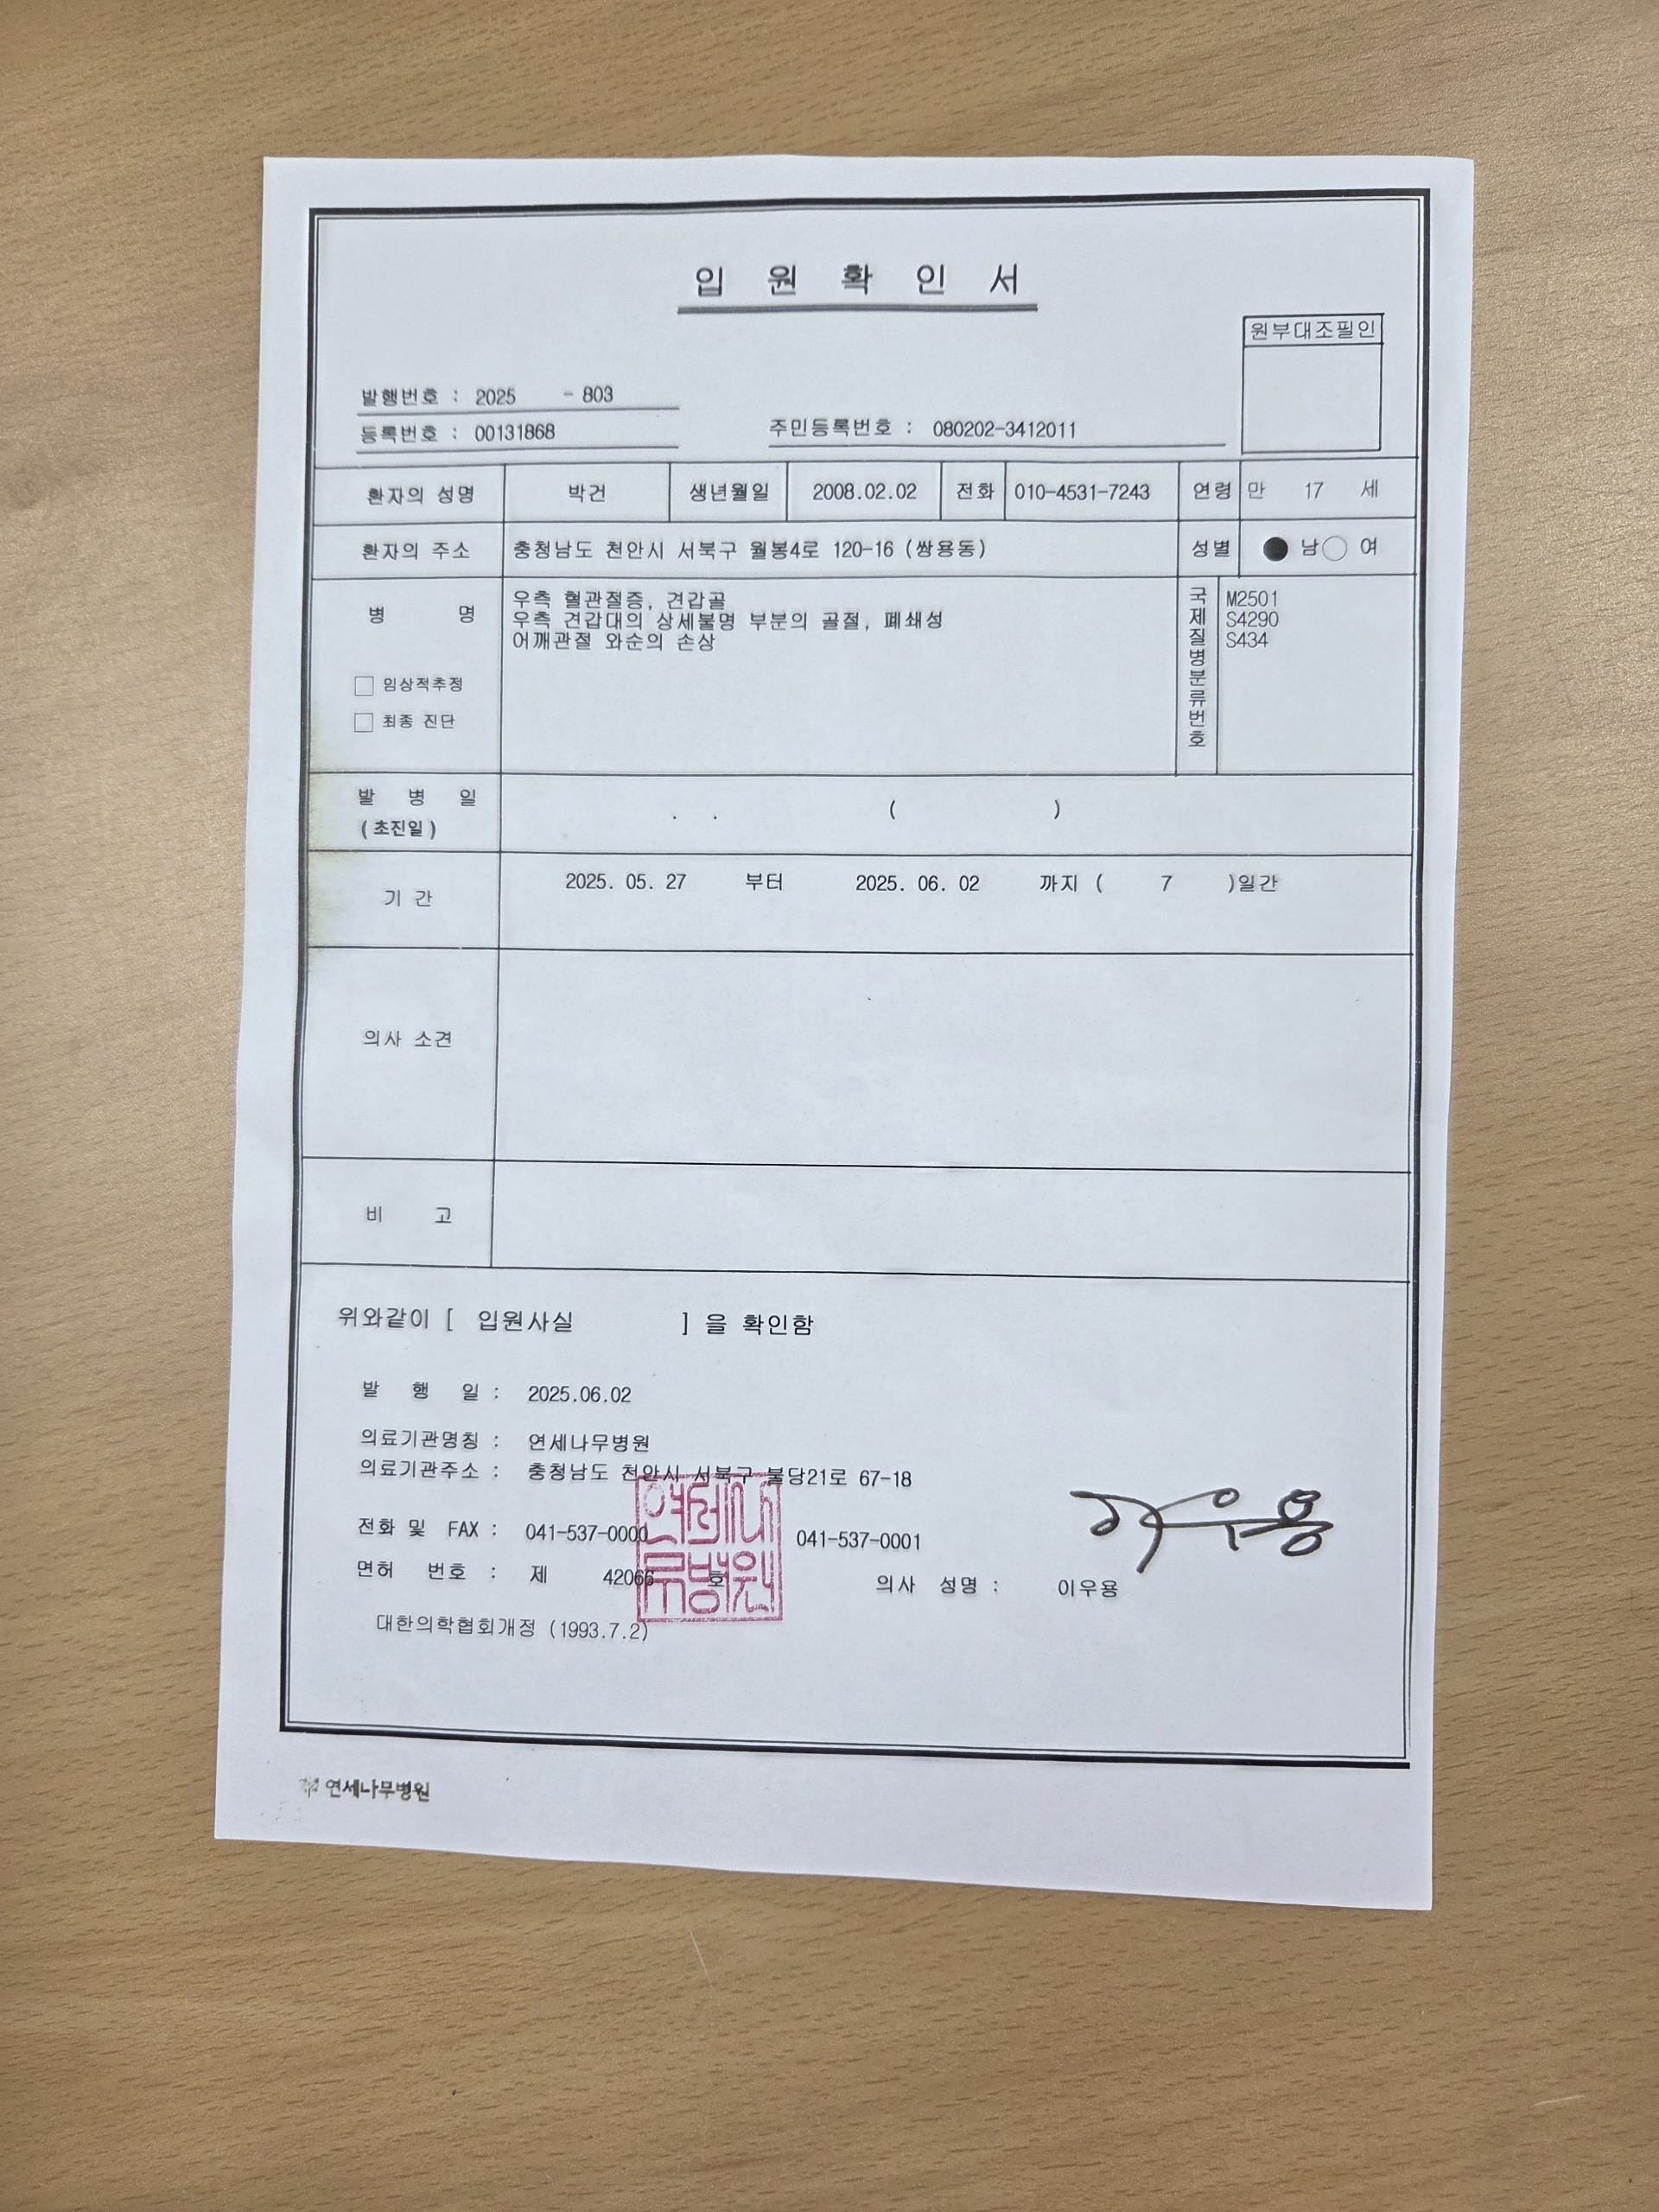 입 원 확 인 서
원부대조필인
발행번호 : 2025 - 803
등록번호 : 00131868 주민등록번호 : 080202-3412011
환자의 성명 박건 생년월일 2008.02.02 전화 010-4531-7243 연령 만 17 세
환자의 주소 충청남도 천안시 서북구 월봉4로 120-16 (쌍용동) 성별 ● 남 ○ 여
병 명
우측 혈관절증, 견갑골
우측 견갑대의 상세불명 부분의 골절, 폐쇄성
어깨관절 와순의 손상
국제질병분류번호
M2501
S4290
S434
□ 임상적추정
□ 최종 진단
발 병 일 . . ( )
(초진일)
기 간 2025. 05. 27 부터 2025. 06. 02 까지 ( 7 )일간
의사 소견
비 고
위와같이 [ 입원사실 ] 을 확인함
발 행 일 : 2025.06.02
의료기관명칭 : 연세나무병원
의료기관주소 : 충청남도 천안시 서북구 불당21로 67-18
전화 및 FAX : 041-537-0000 041-537-0001
면허 번호 : 제 42066 호 의사 성명 : 이우용
연세나
무병원
이우용
대한의학협회개정 (1993.7.2)
연세나무병원